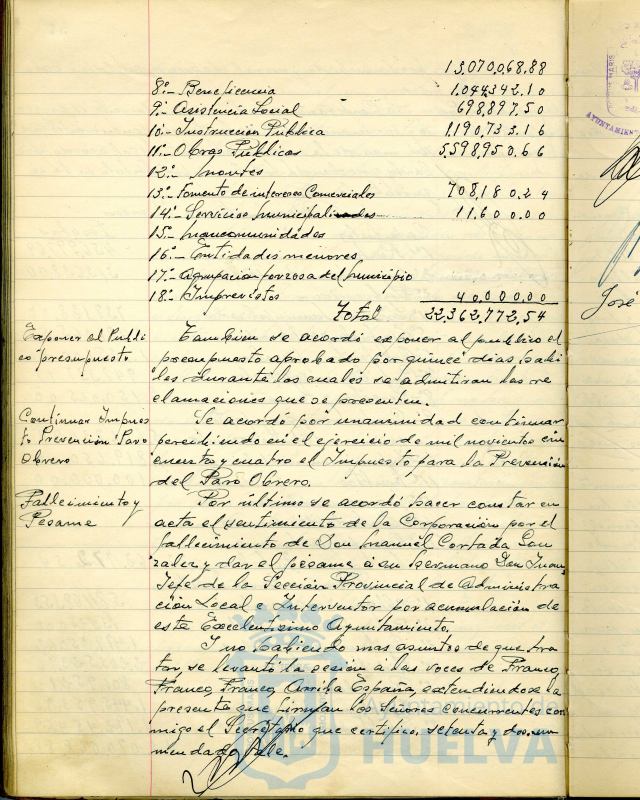 13,070,068.88
8º.- Beneficencia 1.044,342.10
9º.- Asistencia Social 698,897.50
10.- Instrucción Pública 1,190,733.16
11º.- Obras Públicas 5,598,950.66
12º.- Montes
13º.- Fomento de intereses Comerciales 708,180.24
14º.- Servicios municipalizados 11,600.00
15º.- Mancomunidades
16º.- Entidades menores
17º.- Agrupación forzosa del municipio
18º.- Imprevistos 40,000.00
Total 22,362,772,54
Exponer al Públi
co presupuesto
Tambien se acordó exponer al publico el
presupuesto aprobado por quince dias habi
les durante los cuales se admitiran las re
clamaciones que se presenten.
Continuar Impues
to Prevención Paro
Obrero
Se acordó por unanimidad continuar
percibiendo en el ejercicio de mil novientos cin
cuenta y cuatro el Impuesto para la Prevención
del Paro Obrero.
Fallecimiento y
Pésame
Por último se acordó hacer constar en
acta el sentimiento de la Corporación por el
fallecimiento de Don Manuel Cortada Gon
zalez y dar el pésame á su hermano Don Juan,
Jefe de la Sección Provincial de Administra
ción Local e Interventor por acumulación de
este Excelentisimo Ayuntamiento.
Y no habiendo mas asuntos de que tra
tar, se levantó la sesión á las voces de Franco,
Franco, Franco, Arriba España, extendiendose la
presente que firman los Señores concurrentes con
migo el Secretario que certifico, setenta y dos. en
mendado. Vale.
Ayuntamiento de
HUELVA
AYUNTAMIEN
José